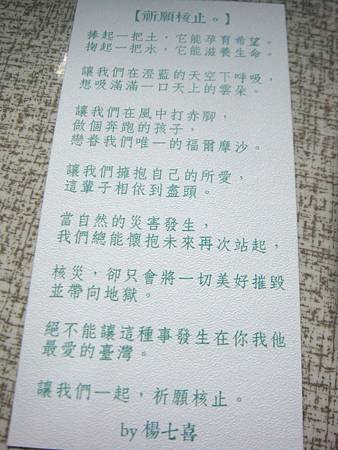 【祈願核止。】
捧起一把土，它能孕育希望。
掬起一把水，它能滋養生命。
讓我們在澄藍的天空下呼吸，
想吸滿滿一口天上的雲朵。
讓我們在風中打赤腳，
做個奔跑的孩子，
戀眷我們唯一的福爾摩沙。
讓我們擁抱自己的所愛，
這輩子相依到盡頭。
當自然的災害發生，
我們總能懷抱未來再次站起，
核災，卻只會將一切美好摧毀
並帶向地獄。
絕不能讓這種事發生在你我他
最愛的臺灣。
讓我們一起，祈願核止。
by 楊七喜